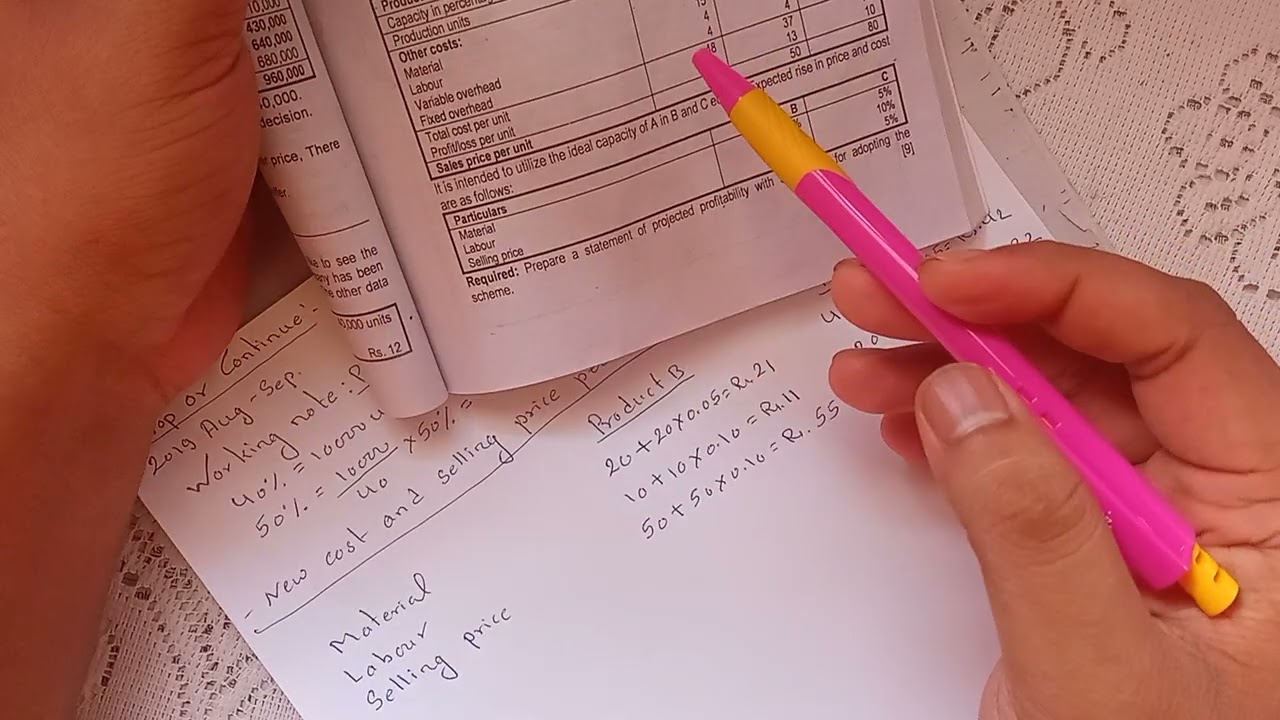 10,000
430,000
640,000
680,000
960,000
decision.
price, There
to see the
has been
other data
units
Rs. 12
Capacity in
Production units
Other costs:
Material
Labour
Variable overhead
Fixed overhead
Total cost per unit
Profit/loss per unit
Sales price per unit
4
4
37 10
13 80
50
It is intended to utilize the ideal capacity of A in B and C expected rise in price and cost
are as follows:
Particulars B C
Material 5%
Labour 10%
Selling price 5%
Required: Prepare a statement of projected profitability with for adopting the
scheme. [9]
or Continue:
2019 Aug-Sep.
Working note:
40% = 10000
50% = 10000/40 × 50% =
- New cost and selling price
Product B
Material 20 + 20 × 0.05 = Rs. 21
Labour 10 + 10 × 0.10 = Rs. 11
Selling price 50 + 50 × 0.10 = Rs. 55